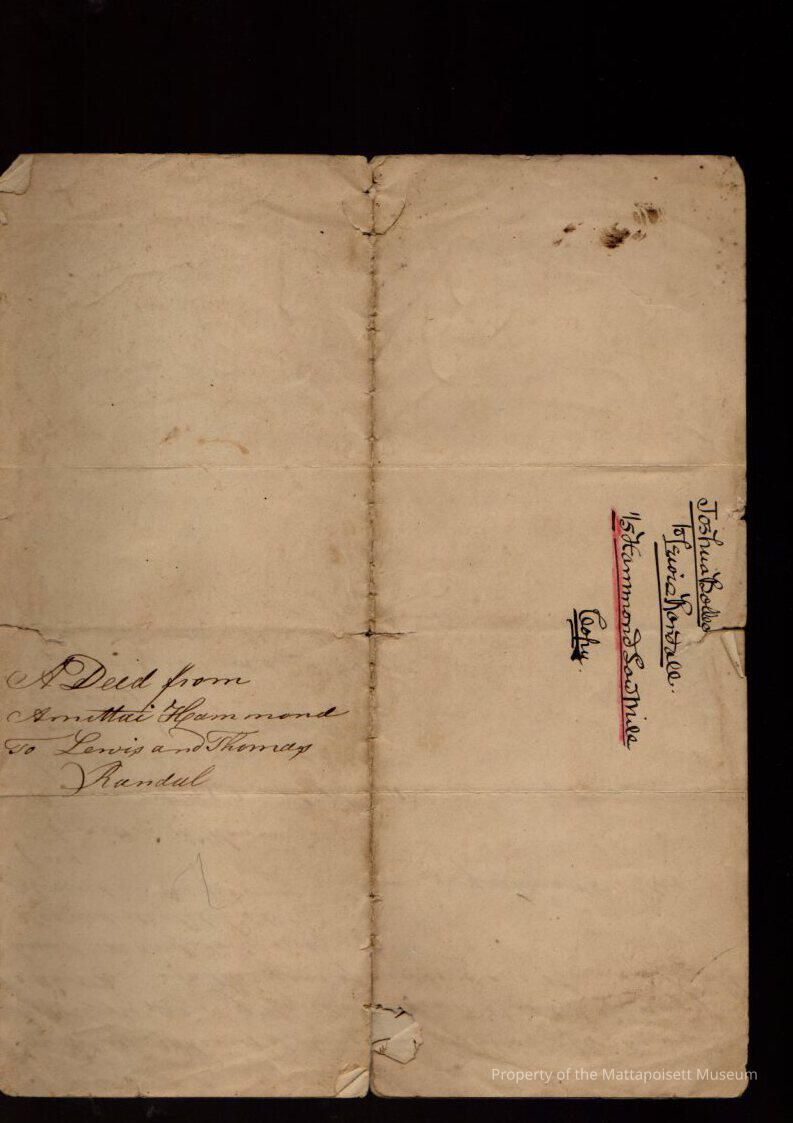 A Deed from
Amittai Hammond
To Lewis and Thomas
Randal
Joshua Bolles
to Lewis Randall.
1/5 Hammond Saw Mill
Copy.
Property of the Mattapoisett Museum